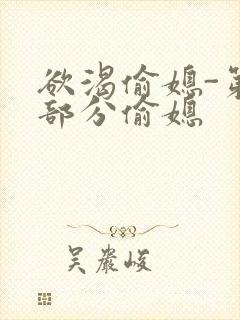 欲渴偷媳-第
部分偷媳
吴岩峻